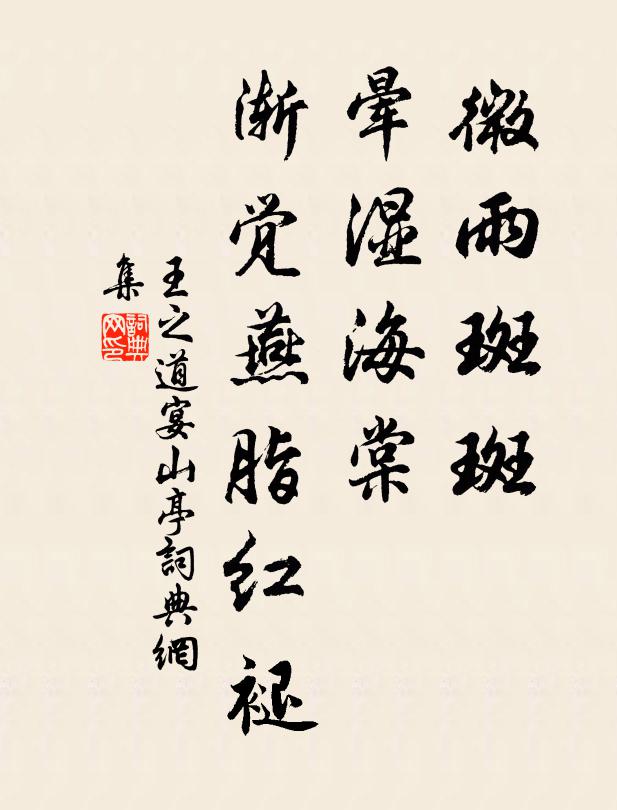 微雨斑斑
晕湿海棠
渐觉燕脂红褪
王之道宴山亭詞典網
集
詞典
网印